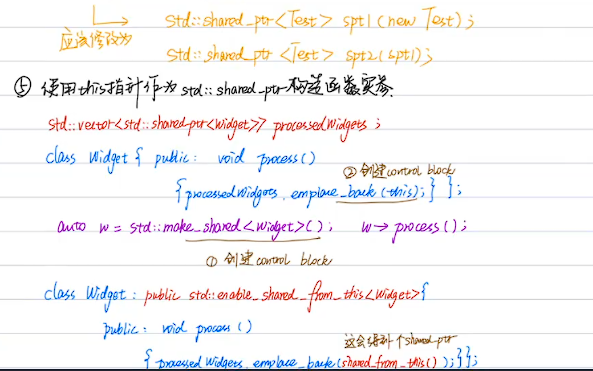 std::shared_ptr<Test> spt1(new Test);
应该修改为
std::shared_ptr<Test> spt2(spt1);
⑤ 使用this指针作为std::shared_ptr构造函数实参
std::vector<std::shared_ptr<Widget>> processedWidgets;
class Widget { public: void process()
② 创建control block
{processedWidgets.emplace_back(this);} };
auto w = std::make_shared<Widget>(); w->process();
① 创建control block
class Widget: public std::enable_shared_from_this<Widget>{
public: void process()
这会得到个shared_ptr
{processedWidgets.emplace_back(shared_from_this());}};